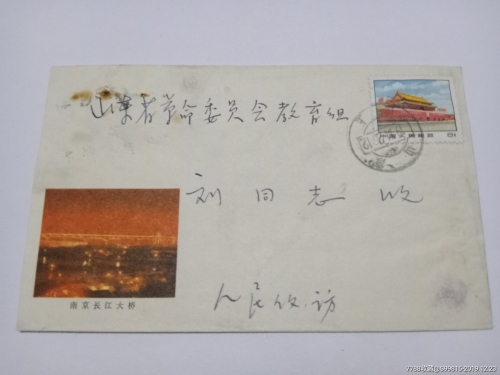 山东省革命委员会教育组
刘同志收
人民收访
南京长江大桥
中国人民邮政
7788收藏@S99815-2019.12.23